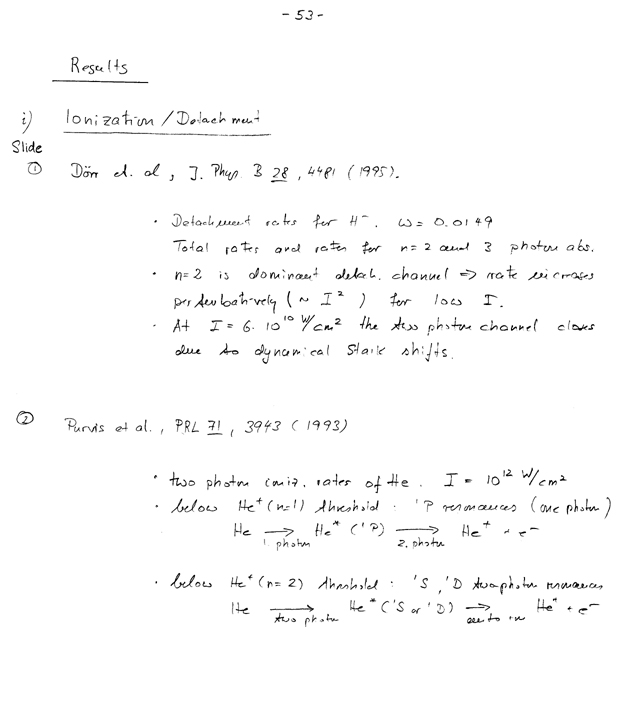 - 53 -
Results
i) Ionization / Detachment
Slide
① Dörr et. al , J. Phys. B 28 , 4481 ( 1995 ) .
· Detachment rates for H⁻. ω = 0.0149
Total rates and rates for n = 2 and 3 photon abs.
· n=2 is dominant detach. channel ⇒ rate increases
perturbatively ( ~ I² ) for low I.
· At I = 6. 10¹⁰ W/cm² the two photon channel closes
due to dynamical Stark shifts.
② Purvis et al. , PRL 71 , 3943 ( 1993 )
· two photon ioniz. rates of He . I = 10¹² W/cm²
· below He⁺ (n=1) threshold : ¹P resonances (one photon)
He ⟶ He* (¹P) ⟶ He⁺ + e⁻
1. photon 2. photon
· below He⁺ (n=2) threshold : ¹S , ¹D two photon resonances
He ⟶ He* (¹S or ¹D) ⟶ He⁺ + e⁻
two photon